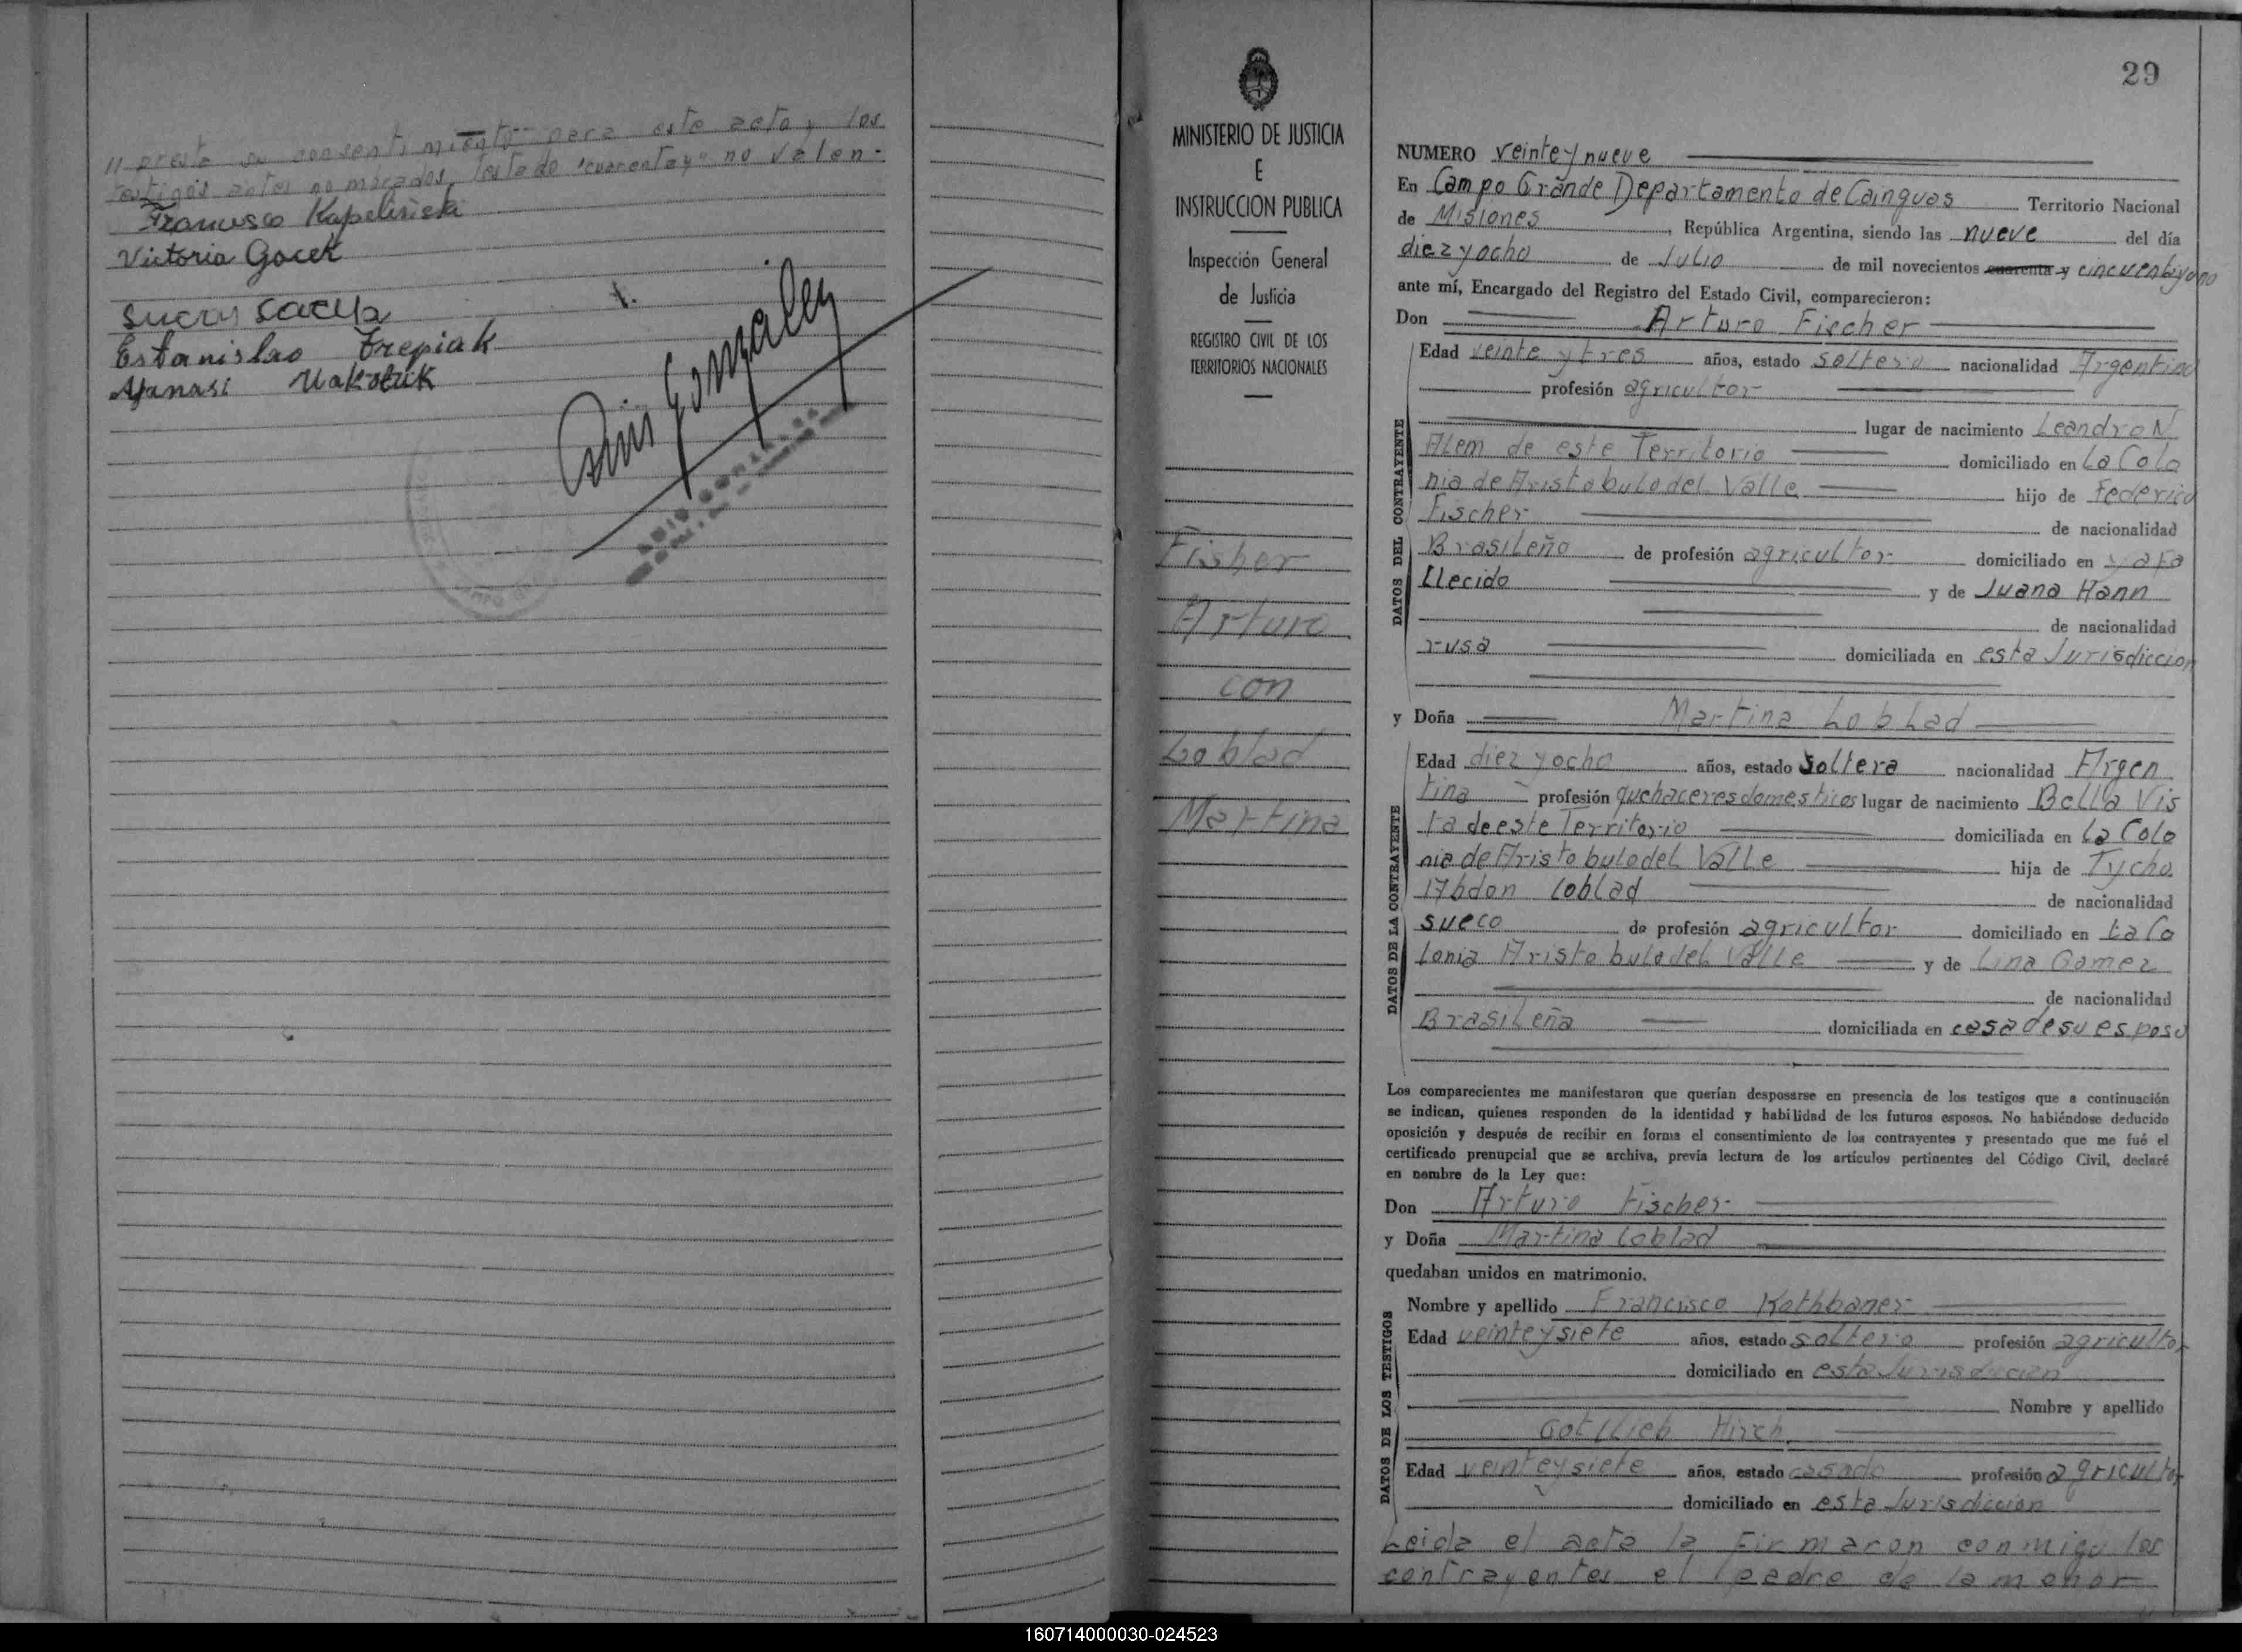 " presta su consentimiento para este acto y los
testigos antes nomrados, Testado "cuarentay" no valen-
Francisco Kapelinski
Victoria Gocek
Estanislao Trepiak
Afanasi
Luis Gonzalez
MINISTERIO DE JUSTICIA
E
INSTRUCCION PUBLICA
Inspección General
de Justicia
REGISTRO CIVIL DE LOS
TERRITORIOS NACIONALES
Fisher
Arturo
con
Loblad
Martina
29
NUMERO veinte y nueve
En Campo Grande Departamento de Cainguas Territorio Nacional
de Misiones, República Argentina, siendo las nueve del día
diez y ocho de Julio de mil novecientos cuarenta y cincuentayuno
ante mí, Encargado del Registro del Estado Civil, comparecieron:
Don Arturo Fischer
DATOS DEL CONTRAYENTE
Edad veinte y tres años, estado soltero nacionalidad Argentino
profesión agricultor
lugar de nacimiento Leandro N
Alem de este Territorio domiciliado en La Colo
nia de Aristobulo del Valle hijo de Federico
Fischer de nacionalidad
Brasileño de profesión agricultor domiciliado en ya fa
llecido y de Juana Hann
de nacionalidad
rusa domiciliada en esta Jurisdiccion
y Doña Martina Loblad
DATOS DE LA CONTRAYENTE
Edad diez y ocho años, estado soltera nacionalidad Argen
tina profesión quehaceres domesticos lugar de nacimiento Bella Vis
ta de este Territorio domiciliada en La Colo
nia de Aristobulo del Valle hija de Tycho
Habdon Loblad de nacionalidad
sueco de profesión agricultor domiciliado en La Co
lonia Aristobulo del Valle y de Lina Gomez
de nacionalidad
Brasileña domiciliada en casa de su esposo
Los comparecientes me manifestaron que querían desposarse en presencia de los testigos que a continuación
se indican, quienes responden de la identidad y habilidad de los futuros esposos. No habiéndose deducido
oposición y después de recibir en forma el consentimiento de los contrayentes y presentado que me fué el
certificado prenupcial que se archiva, previa lectura de los artículos pertinentes del Código Civil, declaré
en nombre de la Ley que:
Don Arturo Fischer
y Doña Martina Loblad
quedaban unidos en matrimonio.
DATOS DE LOS TESTIGOS
Nombre y apellido Francisco Kothbaner
Edad veinte y siete años, estado soltero profesión agricultor
domiciliado en esta Jurisdiccion
Nombre y apellido
Gottlieb Hirch
Edad veinte y siete años, estado casado profesión agricultor
domiciliado en esta Jurisdiccion
Leida el acta la firmaron conmigo los
contrayentes el padre de la menor
160714000030-024523